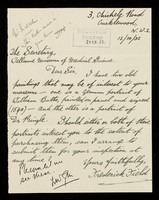 3, Chichele Road
Cricklewood,
N.W.2
12/10/32
The Secretary,
Wellcome Museum of Medical Science
Dear Sir,
I have two old
paintings that may be of interest to your
museum. One is a genuine portrait of
William Butts, painted on panel and signed
1543 — and the other is a portrait of
Dr Pringle. Should either or both of these
portraits interest you to the extent of
purchasing them, can I arrange to
submit them for your inspection at
any time.
Yours faithfully,
Frederick Field